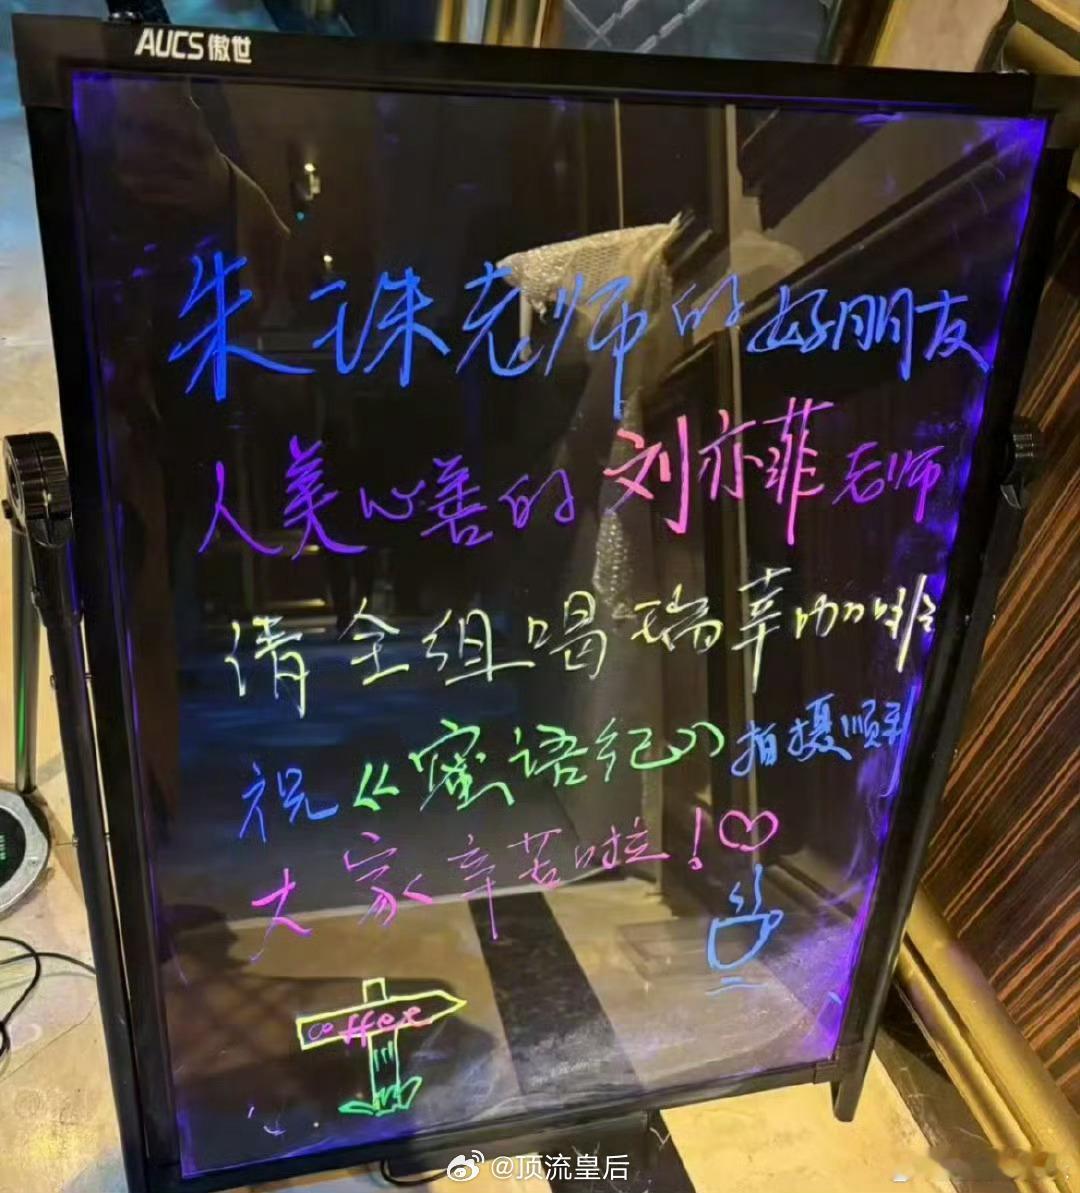 AUCS傲世
朱珠老师的好朋友
人美心善的刘亦菲老师
请全组喝瑞幸咖啡
祝《蜜语纪》拍摄顺利
大家辛苦啦！♡
coffee
@顶流皇后